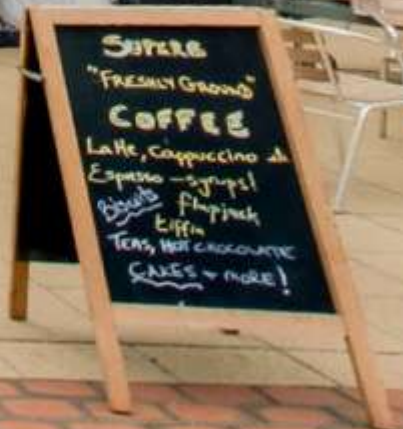 SUPERB
"FRESHLY GROUND"
COFFEE
Latte, Cappuccino
Espresso - syrups!
Biscuits flapjack
tiffin
TEAS, HOT CHOCOLATE
CAKES + MORE!